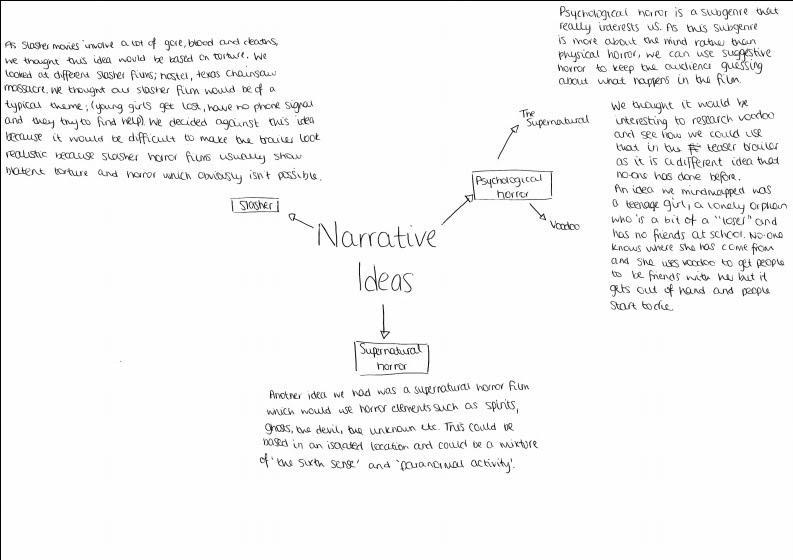 As slasher movies involve a lot of gore, blood and deaths,
we thought this idea would be based on torture. We
looked at different slasher films; hostel, texas chainsaw
massacre. We thought our slasher film would be of a
typical theme; (young girls get lost, have no phone signal
and they try to find help). We decided against this idea
because it would be difficult to make the trailer look
realistic because slasher horror films usually show
blatent torture and horror which obviously isn't possible.
Psychological horror is a subgenre that
really interests us. As this subgenre
is more about the mind rather than
physical horror, we can use suggestive
horror to keep the audience guessing
about what happens in the film.
We thought it would be
interesting to research voodoo
and see how we could use
that in the teaser trailer
as it is a different idea that
no-one has done before.
An idea we mindmapped was
a teenage girl, a lonely orphan
who is a bit of a "loser" and
has no friends at school. No-one
knows where she has come from
and she uses voodoo to get people
to be friends with her but it
gets out of hand and people
start to die.
The
Supernatural
Psychological
horror
Voodoo
Slasher
Narrative
Ideas
Supernatural
horror
Another idea we had was a supernatural horror film
which would use horror elements such as spirits,
ghosts, the devil, the unknown etc. This could be
based in an isolated location and could be a mixture
of 'the sixth sense' and 'paranormal activity'.